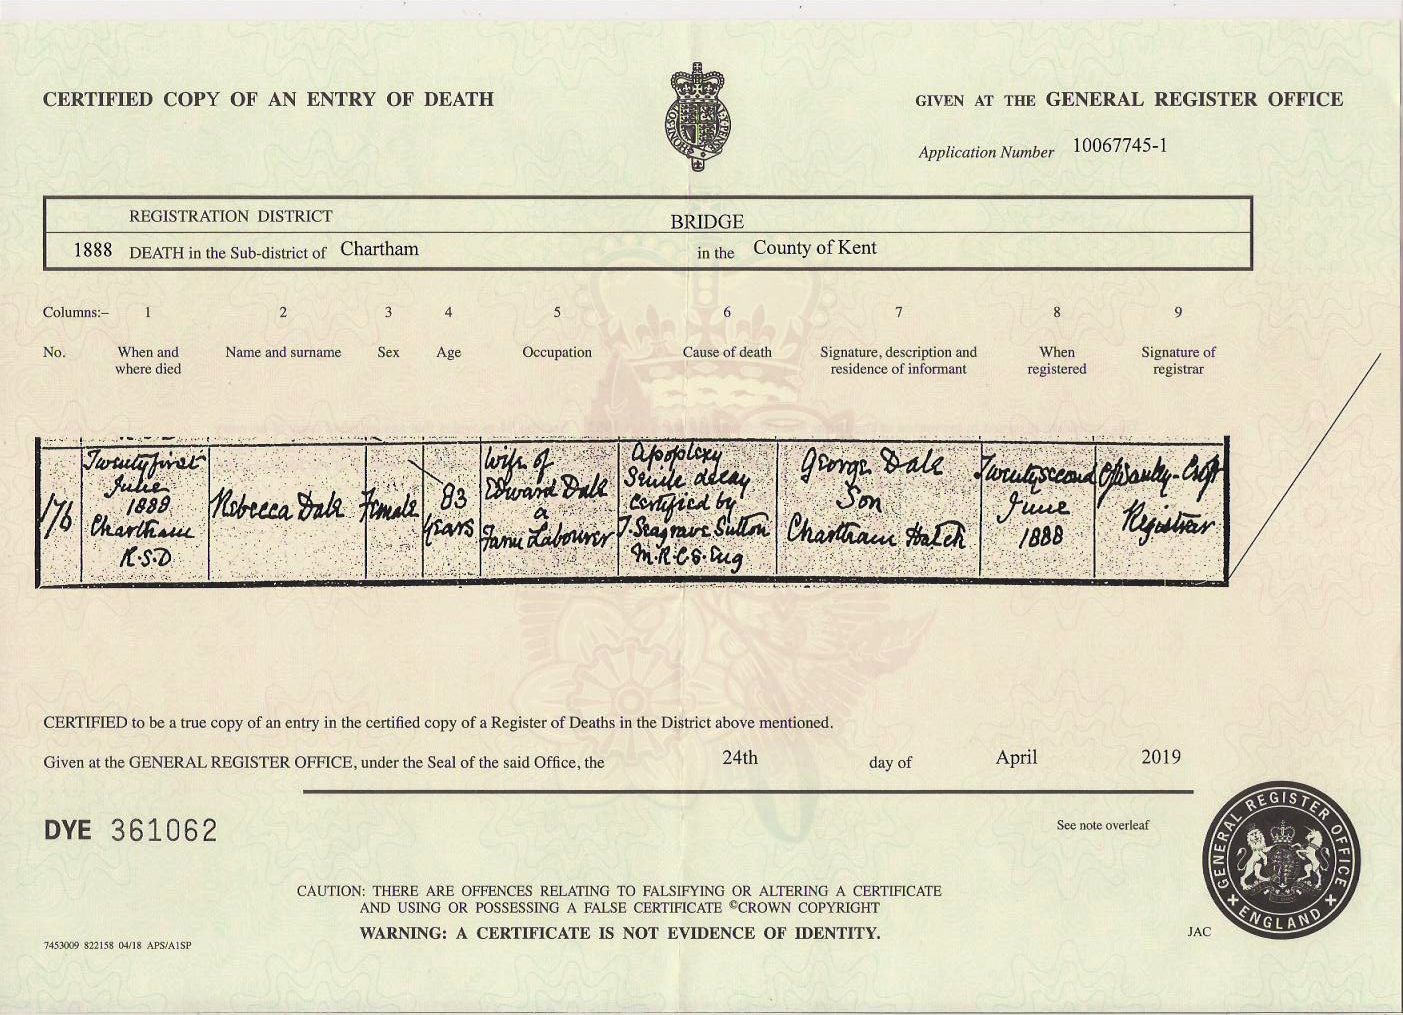 CERTIFIED COPY OF AN ENTRY OF DEATH
GIVEN AT THE GENERAL REGISTER OFFICE
Application Number 10067745-1
REGISTRATION DISTRICT BRIDGE
1888 DEATH in the Sub-district of Chartham in the County of Kent
Columns:– 1 2 3 4 5 6 7 8 9
No. When and where died Name and surname Sex Age Occupation Cause of death Signature, description and residence of informant When registered Signature of registrar
176
Twenty first
June
1888
Chartham
R.S.D
Rebecca Dale
Female
83
years
Wife of
Edward Dale
a
Farm Labourer
Apoplexy
Senile decay
Certified by
J Seagrave Sutton
M.R.C.S. Eng
George Dale
Son
Chartham Hatch
Twenty second
June
1888
Registrar
CERTIFIED to be a true copy of an entry in the certified copy of a Register of Deaths in the District above mentioned.
Given at the GENERAL REGISTER OFFICE, under the Seal of the said Office, the 24th day of April 2019
DYE 361062
See note overleaf
GENERAL REGISTER OFFICE
ENGLAND
CAUTION: THERE ARE OFFENCES RELATING TO FALSIFYING OR ALTERING A CERTIFICATE
AND USING OR POSSESSING A FALSE CERTIFICATE ©CROWN COPYRIGHT
WARNING: A CERTIFICATE IS NOT EVIDENCE OF IDENTITY.
7453009 822158 04/18 APS/A1SP
JAC